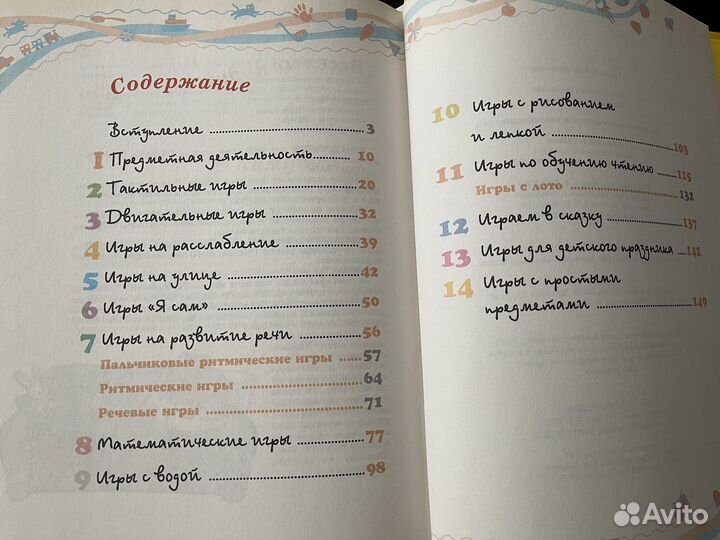 Содержание
Вступление 3
1 Предметная деятельность 10
2 Тактильные игры 20
3 Двигательные игры 32
4 Игры на расслабление 39
5 Игры на улице 42
6 Игры «Я сам» 50
7 Игры на развитие речи 56
Пальчиковые ритмические игры 57
Ритмические игры 64
Речевые игры 71
8 Математические игры 77
9 Игры с водой 98
10 Игры с рисованием
и лепкой 103
11 Игры по обучению чтению 115
Игры с лото 132
12 Играем в сказку 137
13 Игры для детского праздника 142
14 Игры с простыми
предметами 149
Avito